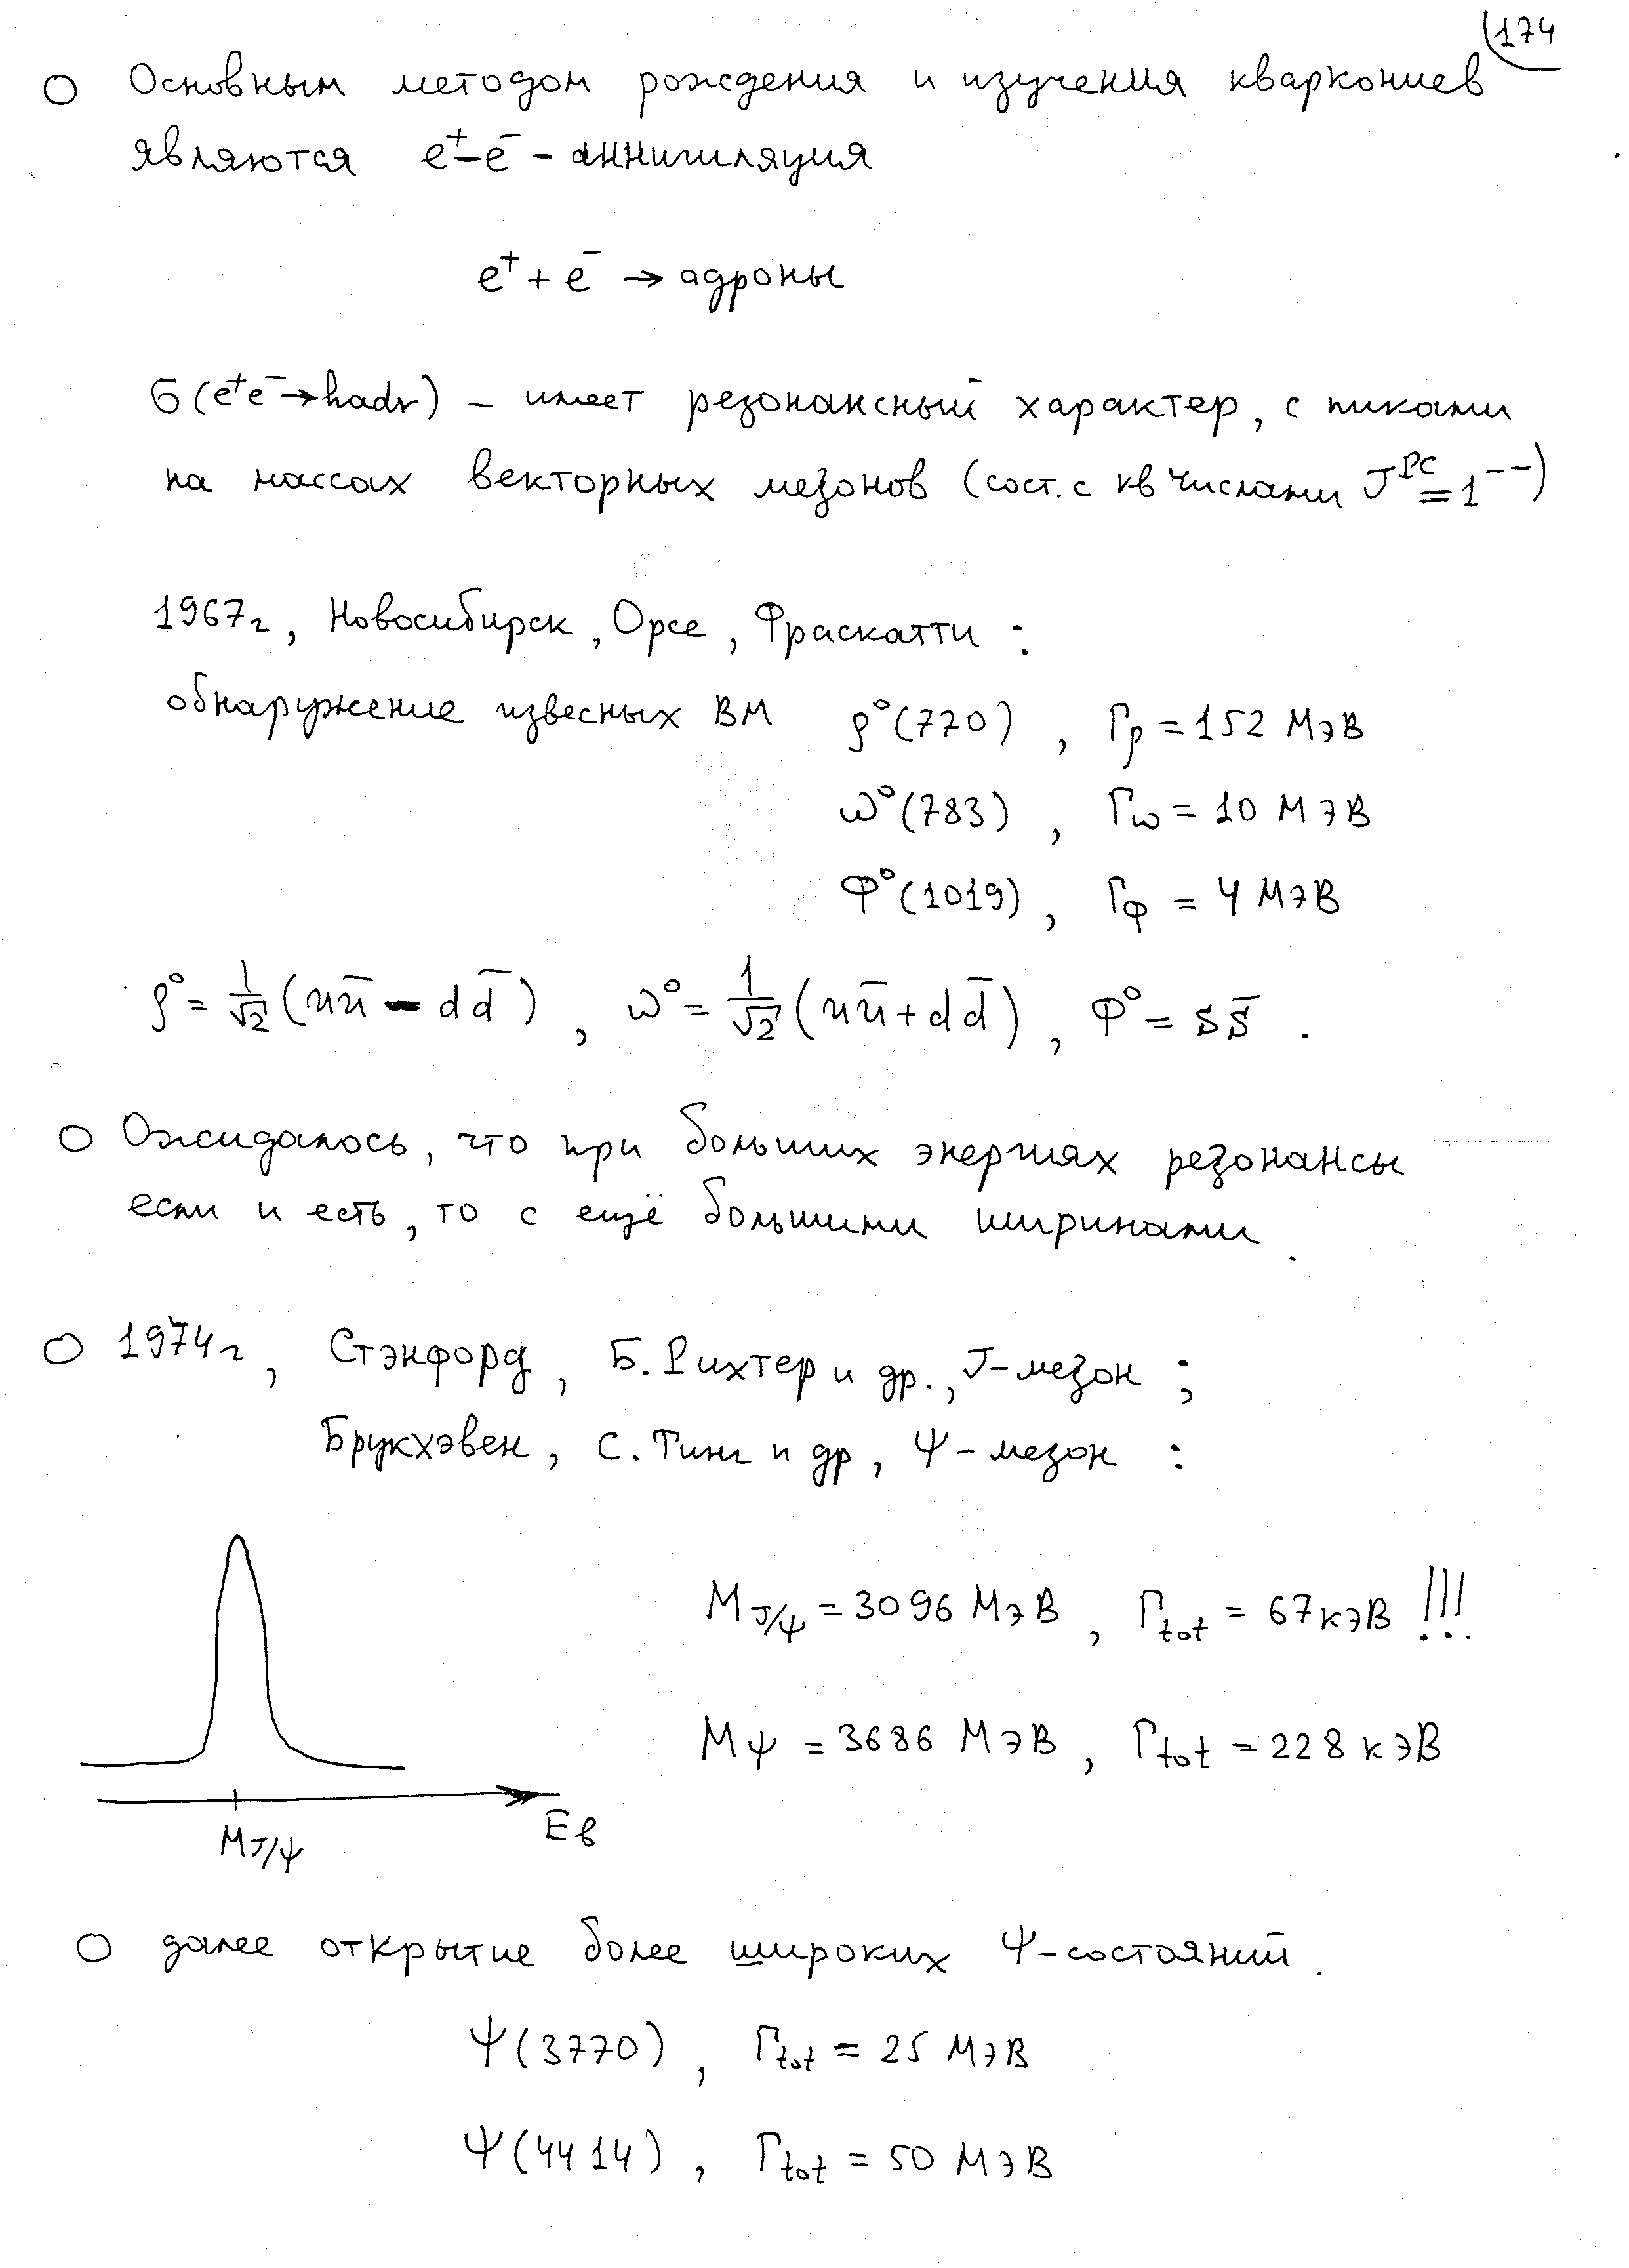 174
Основным методом рождения и изучения кваркониев
являются e⁺-e⁻ - аннигиляция
e⁺ + e⁻ → адроны
σ(e⁺e⁻→hadr) – имеет резонансный характер, с пиками
на массах векторных мезонов (сост. с кв числами J^PC = 1⁻⁻)
1967г, Новосибирск, Орсе, Фраскатти :
обнаружение извесных ВМ ρ⁰(770) , Γρ = 152 МэВ
ω⁰(783) , Γω = 10 МэВ
Φ⁰(1019) , ΓΦ = 4 МэВ
ρ⁰ = 1/√2 (uū - dd̄) , ω⁰ = 1/√2 (uū + dd̄) , Φ⁰ = ss̄ .
Ожидалось, что при больших энергиях резонансы
если и есть, то с ещё большими ширинами .
1974г , Стэнфорд , Б. Рихтер и др., J-мезон ;
Брукхэвен , С. Тинг и др , Ψ-мезон :
M J/Ψ = 3096 МэВ , Γtot = 67 кэВ !!!
MΨ = 3686 МэВ , Γtot = 228 кэВ
Eв
M J/Ψ
далее открытие более широких Ψ-состояний .
Ψ(3770) , Γtot = 25 МэВ
Ψ(4414) , Γtot = 50 МэВ